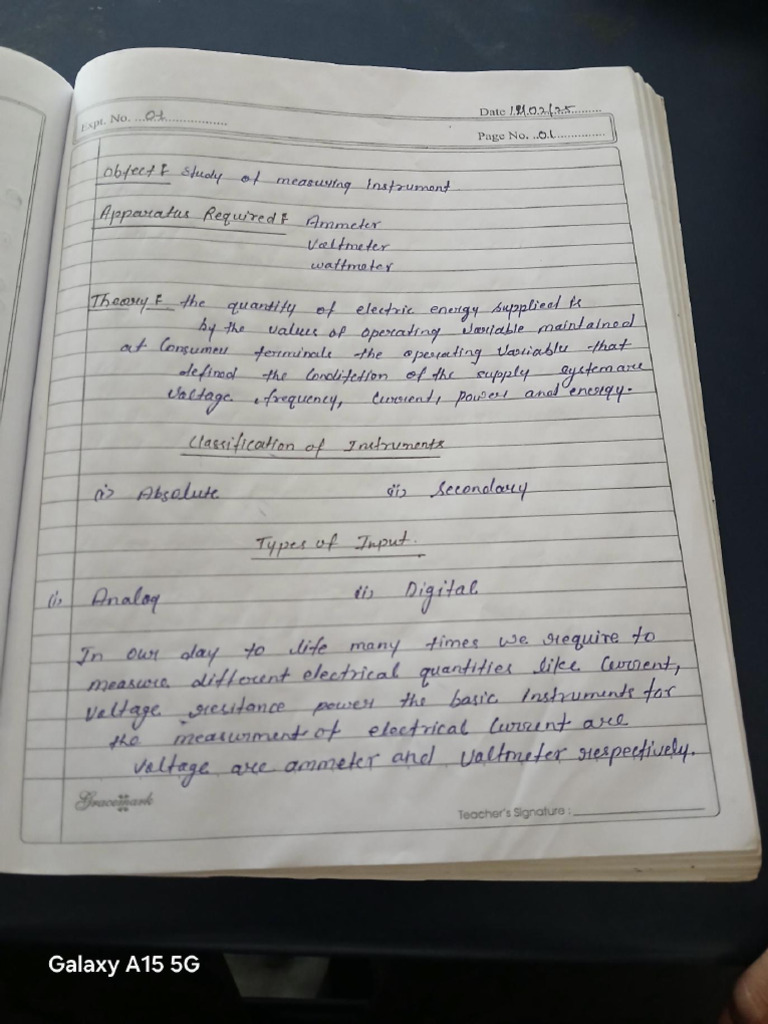 Expt. No. 01
Date 19/02/25
Page No. 01
Object :- Study of measuring Instrument
Apparatus Required :- Ammeter
Voltmeter
wattmeter
Theory :- the quantity of electric energy supplied is
by the values of operating variable maintained
at Consumer terminals the operating variable that
defined the Condifetion of the supply system are
Voltage, frequency, Current, power and energy.
Classification of Instruments
(i) Absolute (ii) Secondary
Types of Input.
(i) Analog (ii) Digital
In our day to life many times we require to
measure different electrical quantities like Current,
Voltage resitance power the basic instruments for
the measurment of electrical Current are
Voltage are ammeter and Voltmeter respectively.
Gracemark
Teacher's Signature :
Galaxy A15 5G